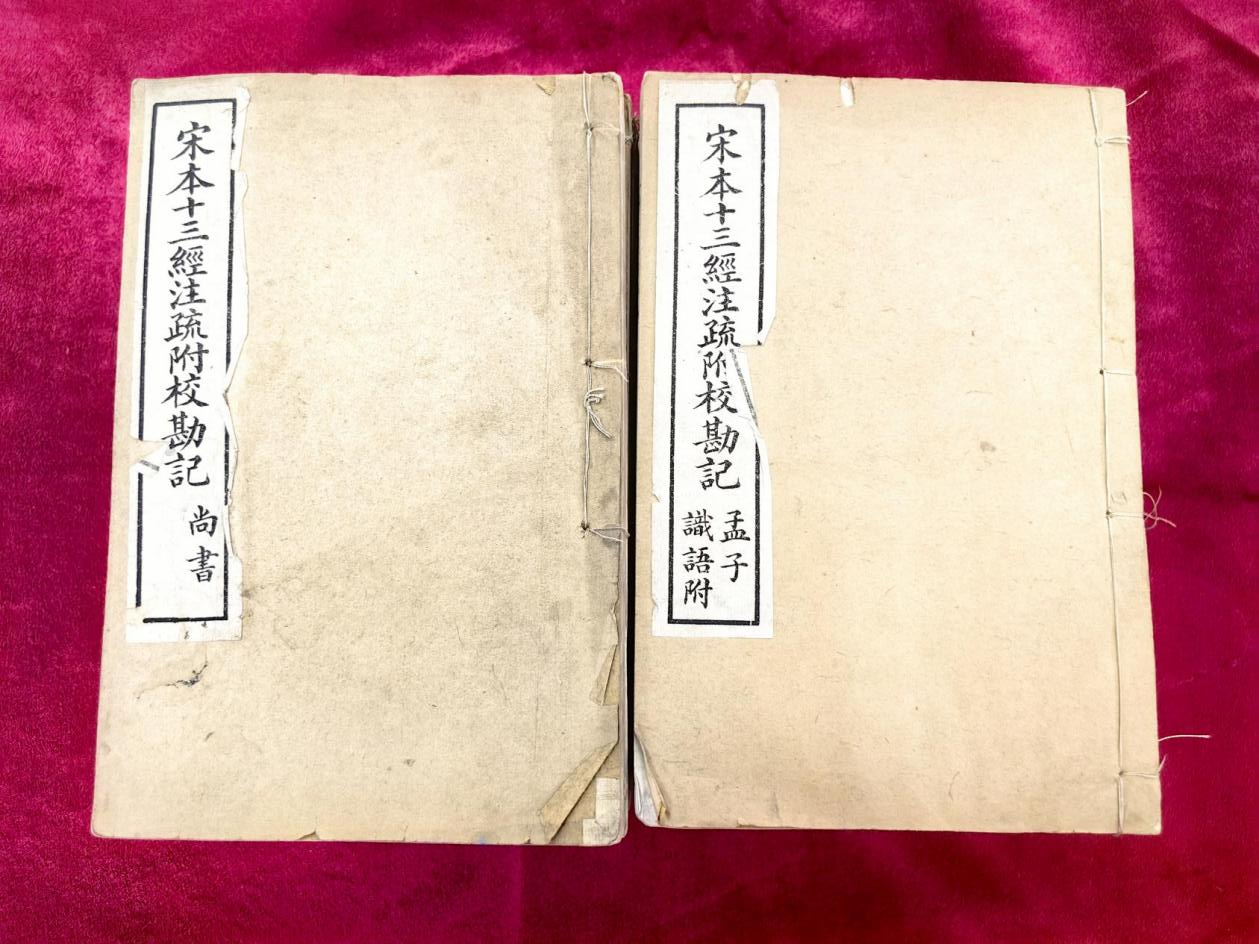 宋本十三經注疏附校勘記
尚書
宋本十三經注疏附校勘記
孟子
識語附